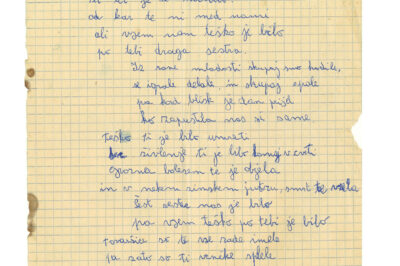 od kar te ni med nami
ali vsem nam težko je bilo
po tebi draga sestra.
Iz rane mladosti skupaj smo hodile,
se igrale delali in skupaj spale
pa kod blisk je dan
ko zapustila nas si same.
Težko ti je bilo umreti
življenje ti je bilo
bolesen te je
in v nekem zimskem jutru, smrt te vzela
šest sester nas je bilo
pa vsem težko po tebi je bilo
so te vse rade imele
pa zato so ti vence splele